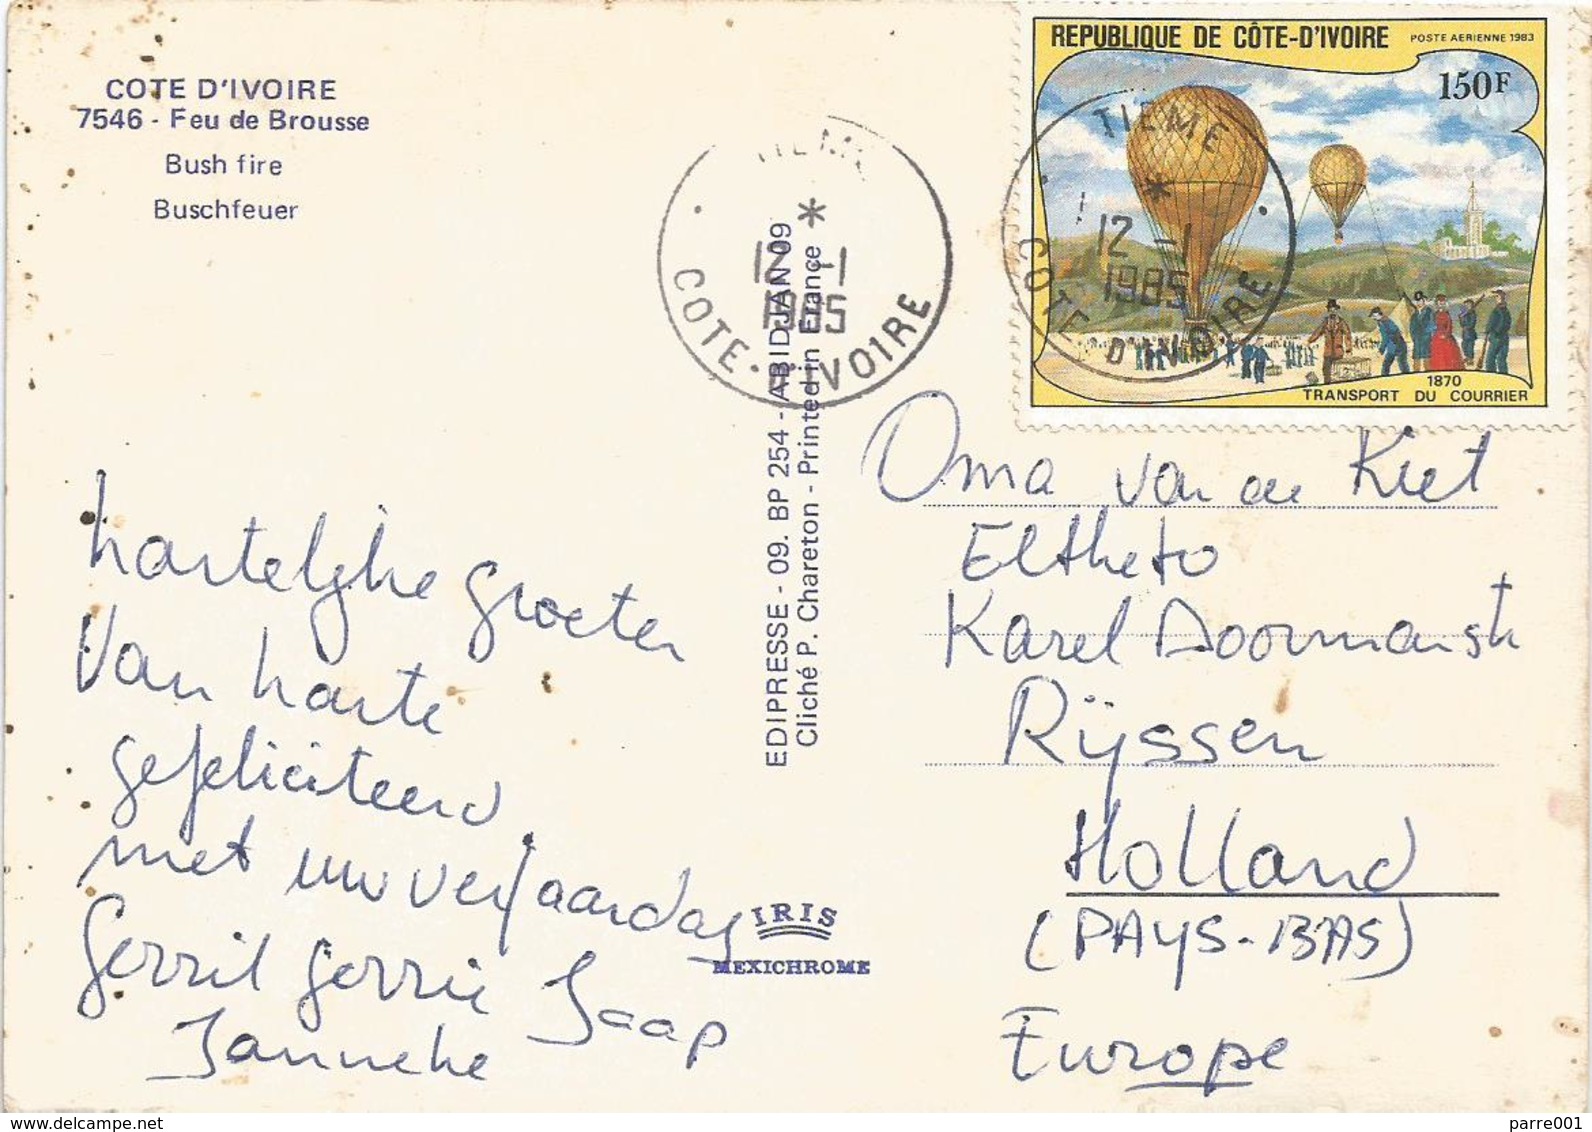 COTE D'IVOIRE
7546 - Feu de Brousse
Bush fire
Buschfeuer
TIEME
12 -1
1985
COTE D'IVOIRE
REPUBLIQUE DE CÔTE-D'IVOIRE
POSTE AERIENNE 1983
150F
TIEME
12 -1
1985
COTE D'IVOIRE
1870
TRANSPORT DU COURRIER
EDIPRESSE - 09. BP 254 - ABIDJAN 09
Cliché P. Chareton - Printed in France
hartelijke groeten
Van harte
gefeliciteerd
met uw verjaardag
Gerrit Gerrie Jaap
Janneke
IRIS
MEXICHROME
Oma van de Kiet
Eltheto
Karel Doormanstr
Rijssen
Holland
(PAYS-BAS)
Europe
parre001